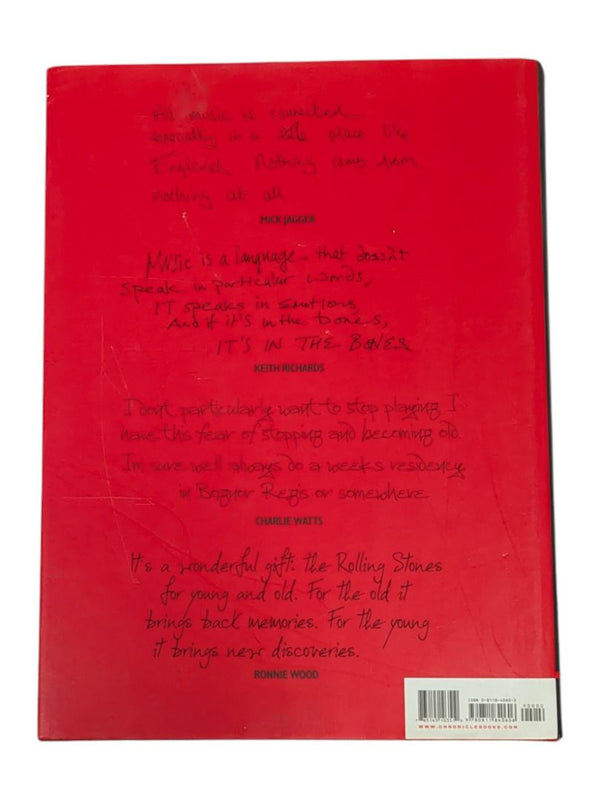 All music is connected
especially in a place like
England. Nothing comes from
nothing at all
MICK JAGGER
Music is a language that doesn't
speak in particular words,
IT speaks in emotions,
And if it's in the bones,
IT'S IN THE BONES
KEITH RICHARDS
I dont particularly want to stop playing I
have this fear of stopping and becoming old.
Im sure well always do a weeks residency
in Bognor Regis or somewhere
CHARLIE WATTS
It's a wonderful gift: the Rolling Stones
for young and old. For the old it
brings back memories. For the young
it brings new discoveries.
RONNIE WOOD
ISBN 0-8118-4060-3
90000
9 780811 840606
WWW.CHRONICLEBOOKS.COM